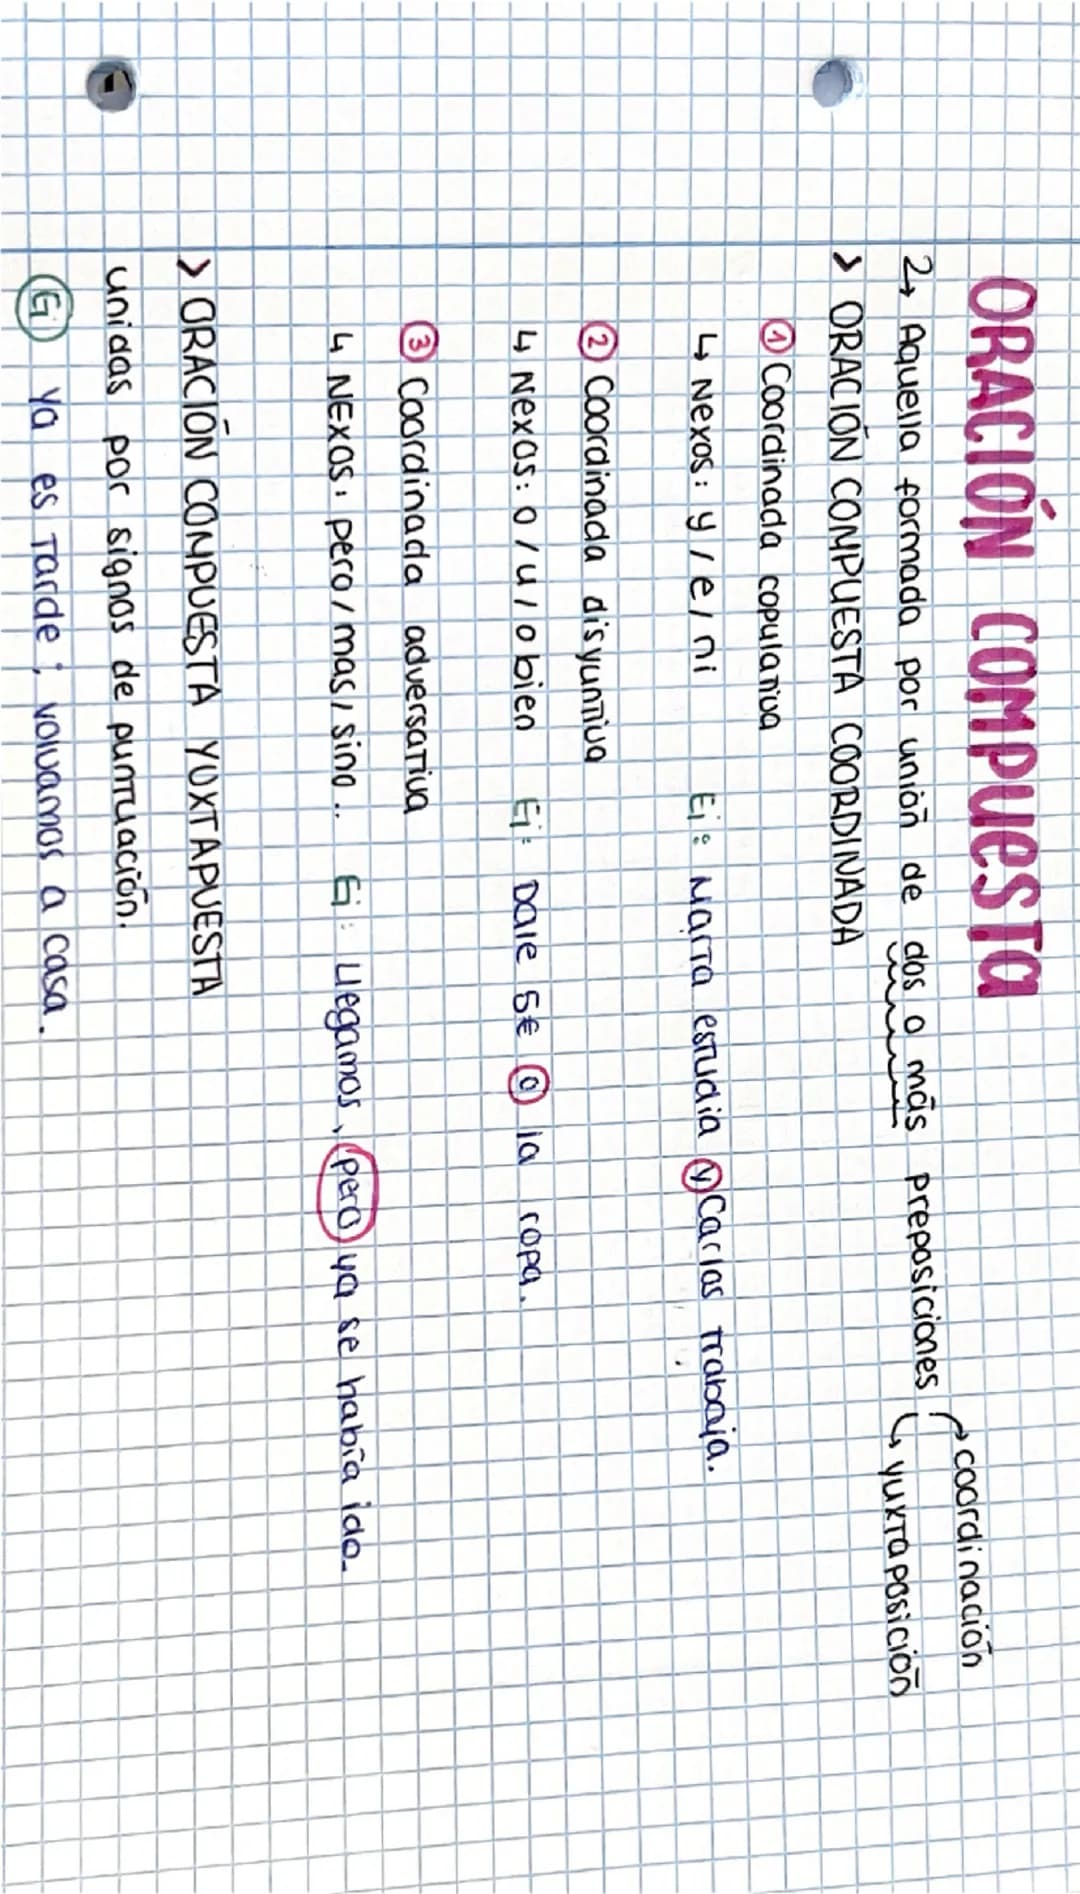 ORACIÓN COMPUESTA
2→ Aquella formada por unión de dos o más preposiciones
→ coordinación
↳ yuxtaposición
> ORACIÓN COMPUESTA COORDINADA
① Coordinada copulativa
↳ Nexos: y / e / ni Ej: Marta estudia y Carlos trabaja.
② Coordinada disyuntiva
↳ Nexos: o / u / o bien Ej: Dale 5€ o la ropa.
③ Coordinada adversativa
↳ NEXOS: pero / mas / sino.. Ej: Llegamos, pero ya se había ido.
> ORACIÓN COMPUESTA YUXTAPUESTA
unidas por signos de puntuación.
Ej Ya es tarde; volvamos a casa.